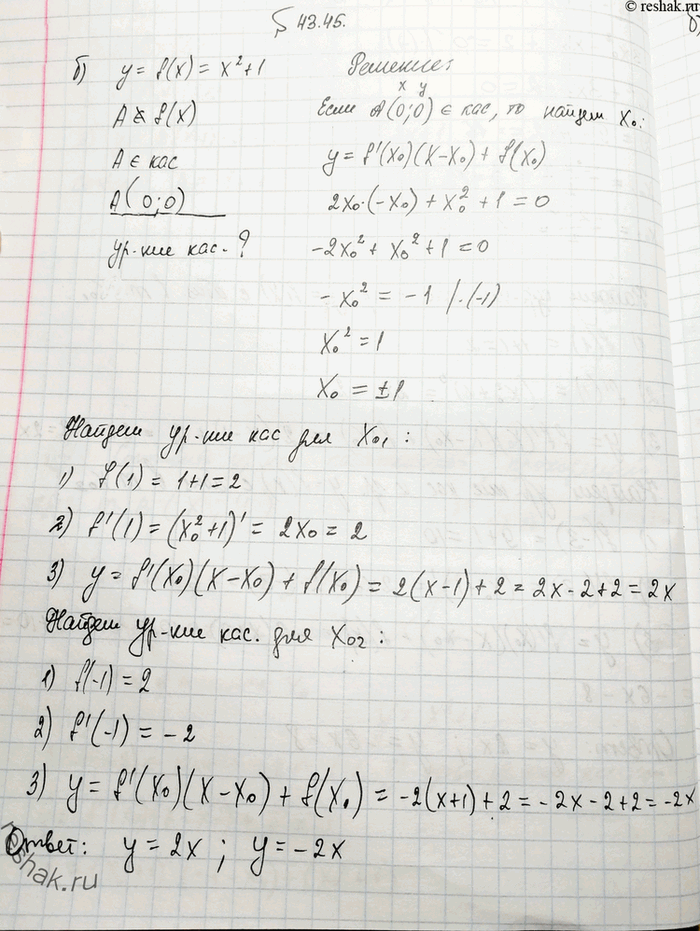 © reshak.ru
§ 43.45.
б)
б) y = f(x) = x² + 1
Решение:
A ∉ f(x)
x y
Если A(0;0) ∈ кас, то найдем x₀:
A ∈ кас
y = f'(x₀)(x-x₀) + f(x₀)
A(0;0)
2x₀·(-x₀) + x₀² + 1 = 0
ур-ние кас-?
-2x₀² + x₀² + 1 = 0
-x₀² = -1 /·(-1)
x₀² = 1
x₀ = ±1
Найдем ур-ние кас для x₀₁:
1) f(1) = 1+1 = 2
2) f'(1) = (x₀²+1)' = 2x₀ = 2
3) y = f'(x₀)(x-x₀) + f(x₀) = 2(x-1) + 2 = 2x-2+2 = 2x
Найдем ур-ние кас. для x₀₂:
1) f(-1) = 2
2) f'(-1) = -2
3) y = f'(x₀)(x-x₀) + f(x₀) = -2(x+1) + 2 = -2x-2+2 = -2x
Ответ: y = 2x ; y = -2x
reshak.ru